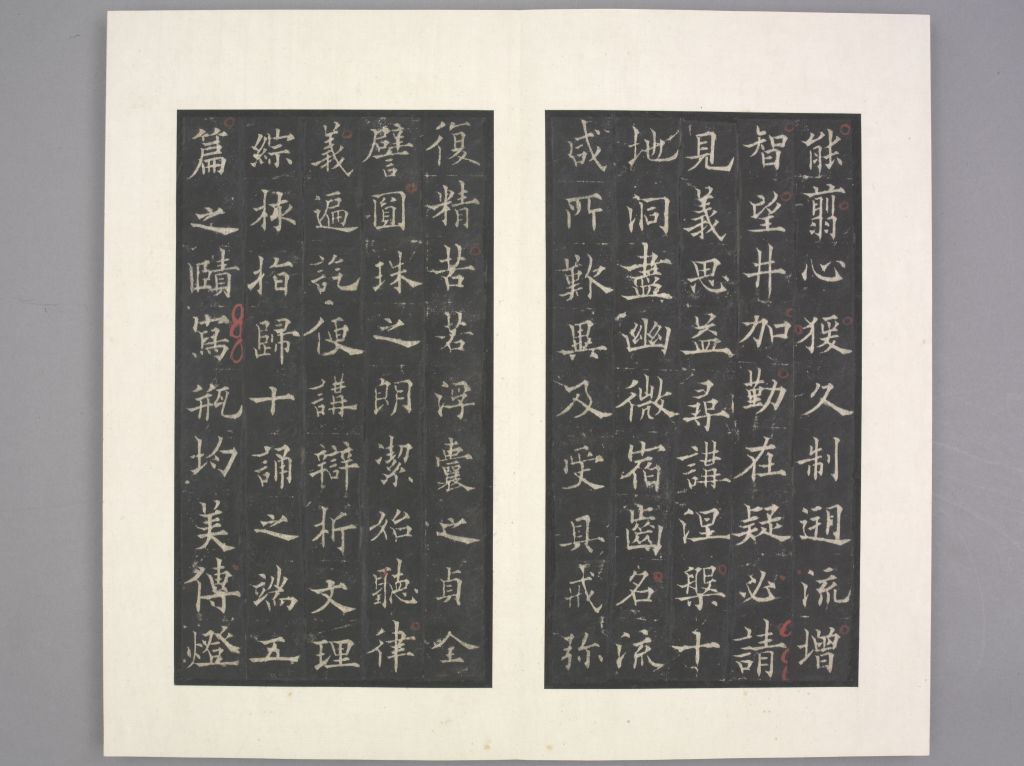 能翦心猨久制遡流增
智望井加勤在疑必請
見義思益尋講涅槃十
地洞盡幽微宿齒名流
咸所歎異及受具戒弥
復精苦若浮囊之貞全
譬圓珠之朗潔始聽律
義遍訖便講辯析文理
綜指歸十誦之端五
篇之賾寫瓶均美傳燈